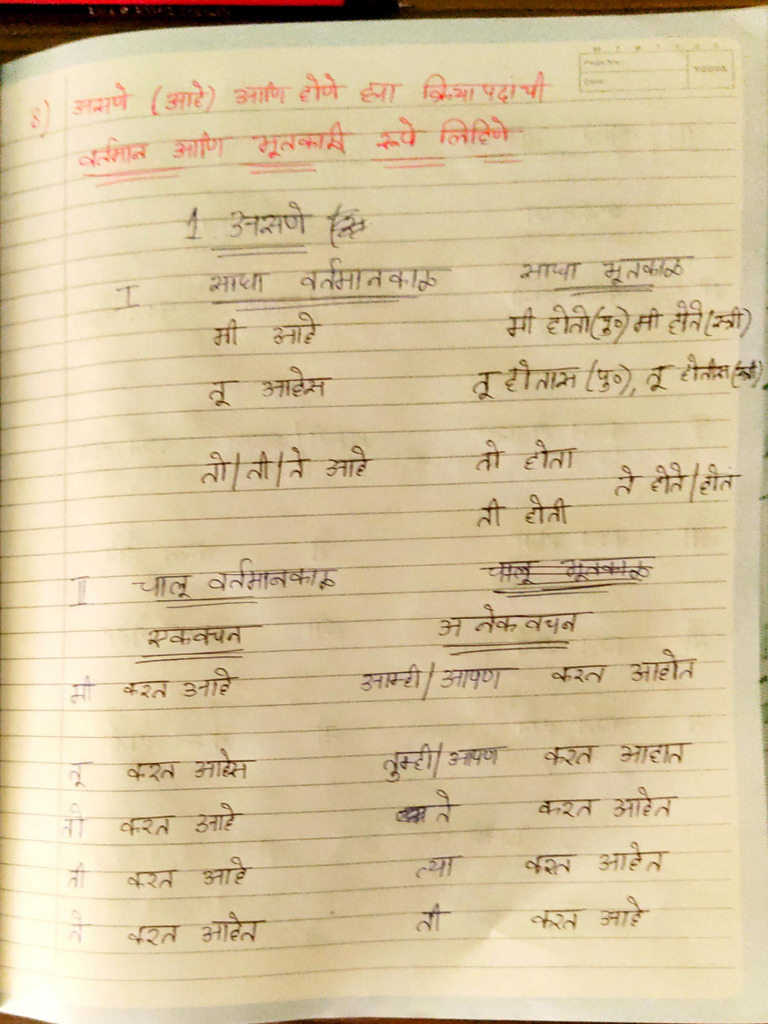 8) असणे (आहे) आणि होणे ह्या क्रियापदांची
वर्तमान आणि भूतकाळी रूपे लिहिणे
1 असणे
I साधा वर्तमानकाळ साधा भूतकाळ
मी आहे मी होतो (पु०) मी होते (स्त्री)
तू आहेस तू होतास (पु०), तू होतीस (स्त्री)
तो/ती/ते आहे तो होता ते होते/होतं
ती होती
II चालू वर्तमानकाळ चालू भूतकाळ
एकवचन अनेकवचन
मी करत आहे आम्ही/आपण करत आहोत
तू करत आहेस तुम्ही/आपण करत आहात
तो करत आहे ते करत आहेत
ती करत आहे त्या करत आहेत
ते करत आहेत ती करत आहे